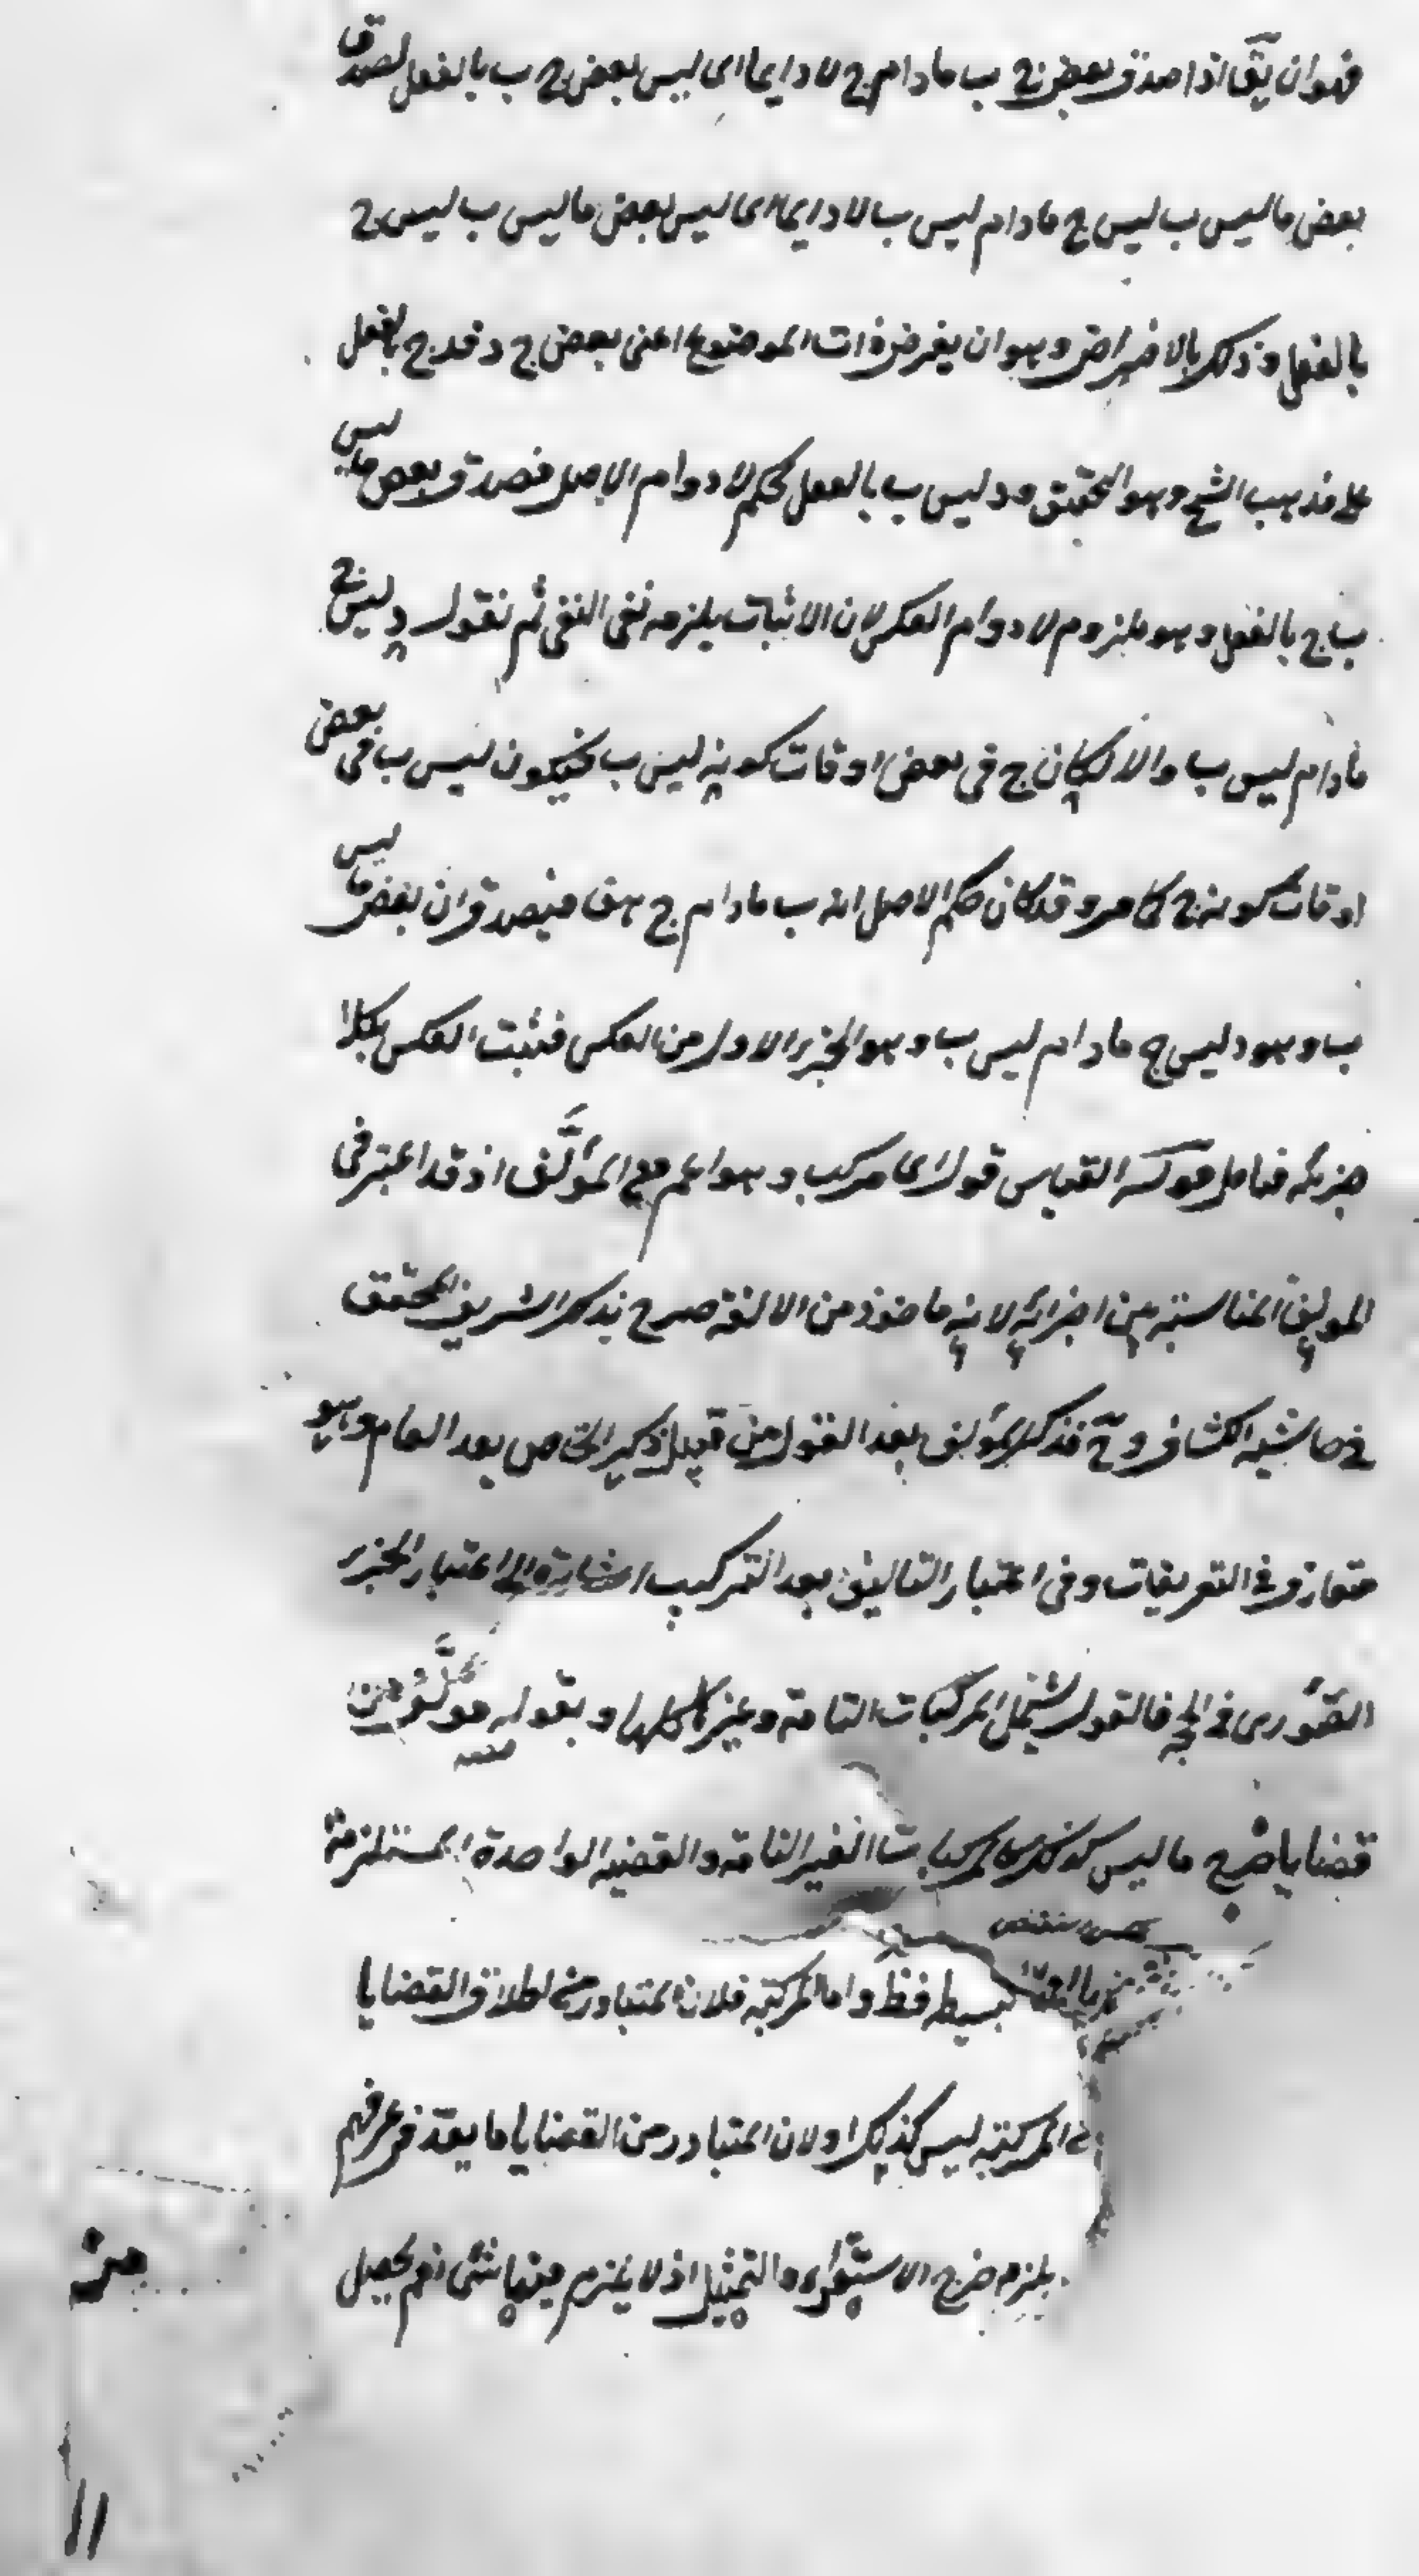 فهو ان يقّ اذا صدق بعض ج ب ما دام ج لا دايما اى ليس بعض ج ب بالفعل لصدق
بعض ما ليس ب ليس ج ما دام ليس ب لا دايما اى ليس بعض ما ليس ب ليس ج
بالفعل وذلك بالافتراض وهو ان يفرض ذات الموضوع اعنى بعض ج د فد ج بالفعل
على مذهب الشيخ وهو التحقيق ود ليس ب بالفعل بحكم لا دوام الاصل فصدق بعض ما ليس
ب ج بالفعل وهو ملزوم لا دوام العكس لان الاثبات يلزمه نفى النفى ثم نقول د ليس ج
ما دام ليس ب والا لكان ج فى بعض اوقات كونه ليس ب فيكون ليس ب فى بعض
اوقات كونه ج كما مر وقد كان حكم الاصل انه ب ما دام ج هف فيصدق ان بعض ما ليس
ب وهو د ليس ج ما دام ليس ب وهو الجزء الاول من العكس فثبت العكس بكلا
جزئيه فتامل قوله القياس قول اى مركب وهو اعم من المؤلَّف اذ قد اعتبر فى
المؤلف المناسبة بين اجزائه لانه ماخوذ من الالفة صرح بذلك الشريف المحقق
فى حاشية الكشاف وحّ فذكر المؤلف بعد القول من قبيل ذكر الخاص بعد العام وهو
متعارف فى التعريفات وفى اعتبار التاليف بعد التركيب اشارة الى اعتبار الجزء
الصّورى فى الحجة فالقول يشتمل المركبات التامة وغيرها كلها وبقوله مؤلَّف من
قضايا خرج ما ليس كذلك كالمركبات الغير التامة والقضية الواحدة المستلزمة
بسيطه فظّ واما المركبة فلان المتبادر من اطلاق القضايا
المركبة ليس كذلك او لان المتبادر من القضايا ما يعدّ فى عرفهم
يلزم خرج الاستقراء والتمثيل اذ لا يلزم منهما شئ نعم يحصل
من
11